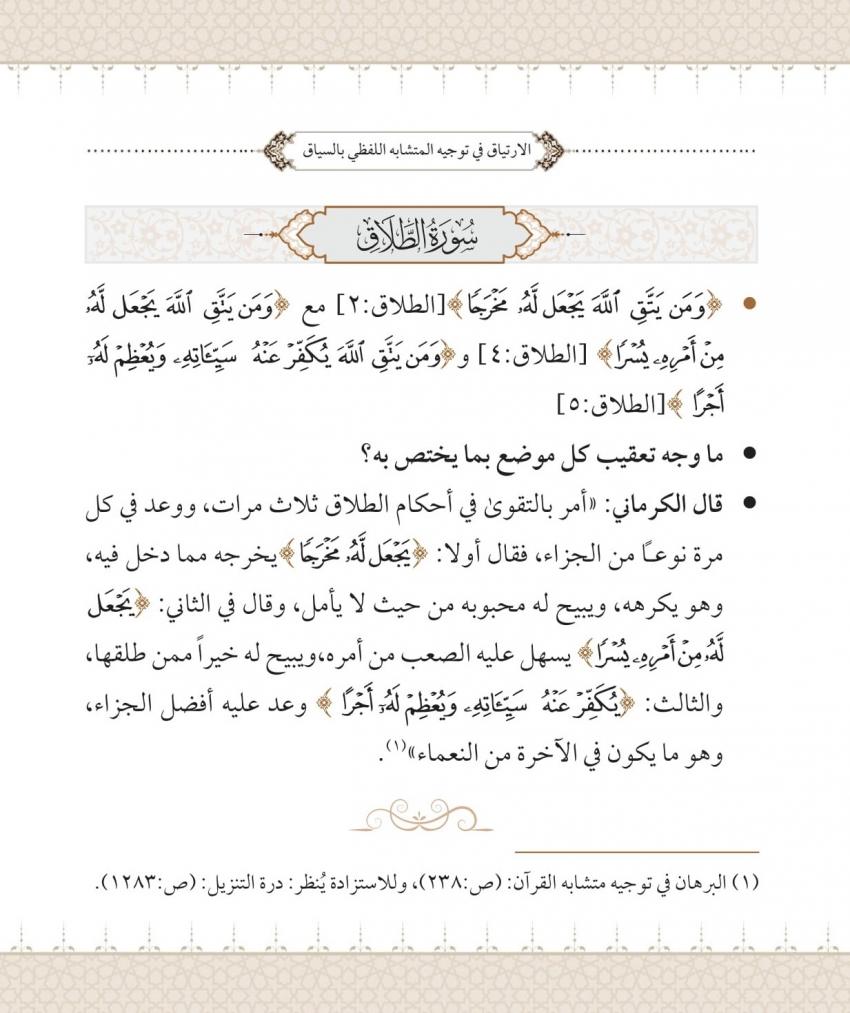 الارتياق في توجيه المتشابه اللفظي بالسياق
سُورَةُ الطَّلَاقِ
• ﴿وَمَن يَتَّقِ ٱللَّهَ يَجْعَل لَّهُۥ مَخْرَجًا﴾[الطلاق:٢] مع ﴿وَمَن يَتَّقِ ٱللَّهَ يَجْعَل لَّهُۥ
مِنْ أَمْرِهِۦ يُسْرًا﴾ [الطلاق:٤] و﴿وَمَن يَتَّقِ ٱللَّهَ يُكَفِّرْ عَنْهُ سَيِّـَٔاتِهِۦ وَيُعْظِمْ لَهُۥٓ
أَجْرًا ﴾[الطلاق:٥]
• ما وجه تعقيب كل موضع بما يختص به؟
• قال الكرماني: «أمر بالتقوىٰ في أحكام الطلاق ثلاث مرات، ووعد في كل
مرة نوعـًا من الجزاء، فقال أولا: ﴿يَجْعَل لَّهُۥ مَخْرَجًا﴾يخرجه مما دخل فيه،
وهو يكرهه، ويبيح له محبوبه من حيث لا يأمل، وقال في الثاني: ﴿يَجْعَل
لَّهُۥ مِنْ أَمْرِهِۦ يُسْرًا﴾ يسهل عليه الصعب من أمره،ويبيح له خيراً ممن طلقها،
والثالث: ﴿يُكَفِّرْ عَنْهُ سَيِّـَٔاتِهِۦ وَيُعْظِمْ لَهُۥٓ أَجْرًا ﴾ وعد عليه أفضل الجزاء،
وهو ما يكون في الآخرة من النعماء»(١).
(١) البرهان في توجيه متشابه القرآن: (ص:٢٣٨)، وللاستزادة يُنظر: درة التنزيل: (ص:١٢٨٣).